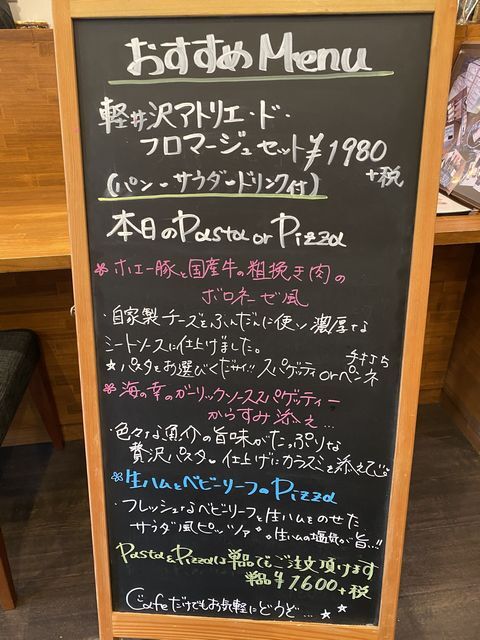 おすすめMenu
軽井沢アトリエ・ド・
フロマージュセット¥1980
+税
(パン・サラダ・ドリンク付)
本日のPasta or Pizza
*ホエー豚と国産牛の粗挽き肉の
ボロネーゼ風
・自家製チーズをふんだんに使い濃厚な
ミートソースに仕上げました。
★パスタをお選びください!スパゲッティor
手打ち
ペンネ
*海の幸のガーリックソーススパゲッティー
からすみ添え…
・色々な魚介の旨味がたっぷりな
贅沢パスタ 仕上げにカラスミを添えて
*生ハムとベビーリーフのPizza
・フレッシュなベビーリーフと生ハムをのせた
サラダ風ピッツァ 生ハムの塩気が旨い!!
Pasta&Pizzaは単品でもご注文頂けます
単品¥1,600+税
Cafeだけでもお気軽にどうぞ…★★